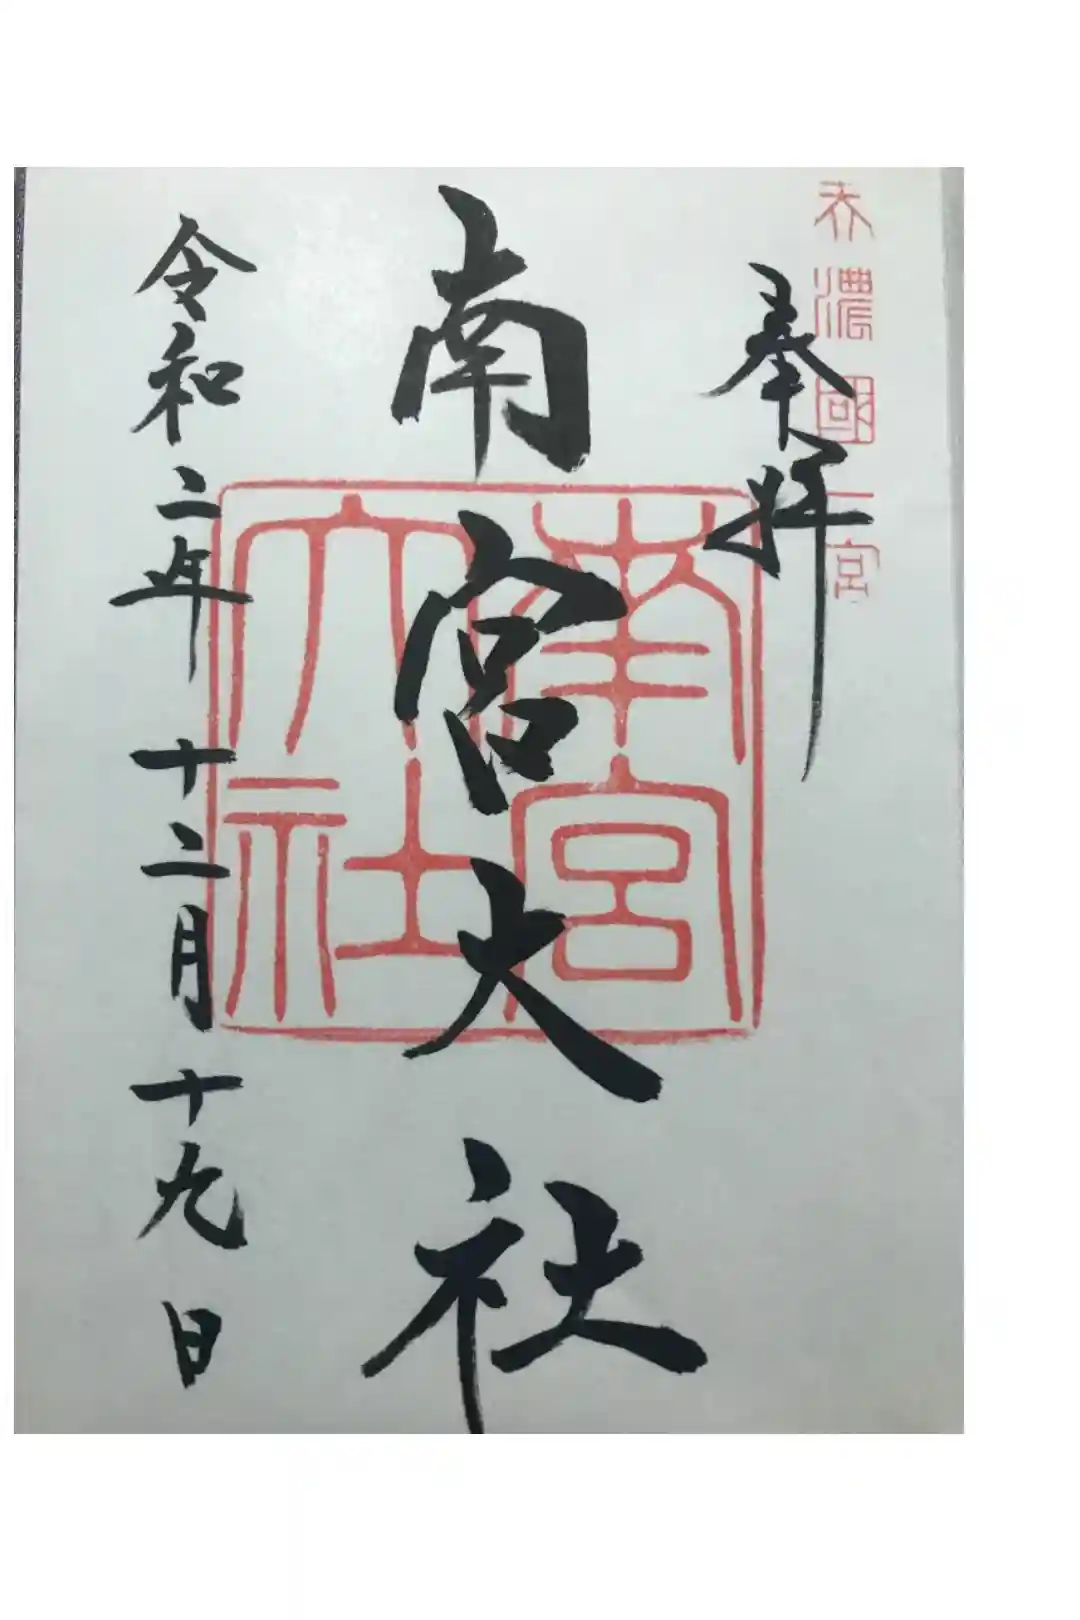 美濃國一宮
奉拝
南宮大社
南宮
大社
令和二年十二月十九日